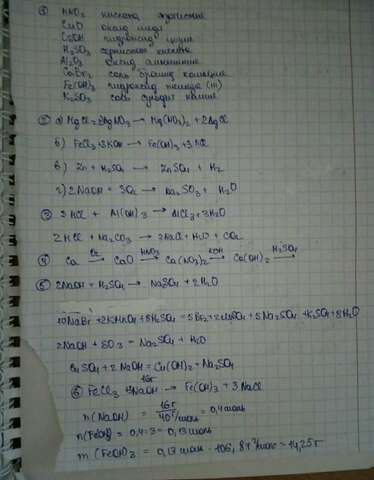 ① HNO₃ кислота азотистая
CuO оксид меди
CsOH гидроксид цезия
H₂SO₃ сернистая кислота
Al₂O₃ оксид алюминия
CaBr₂ соль бромид кальция
Fe(OH)₃ гидроксид железа (III)
K₂SO₃ соль сульфит калия
② а) MgCl₂ + 2AgNO₃ → Mg(NO₃)₂ + 2AgCl
б) FeCl₃ + 3KOH → Fe(OH)₃ + 3KCl
в) Zn + H₂SO₄ → ZnSO₄ + H₂
г) 2NaOH + SO₂ → Na₂SO₃ + H₂O
③ 3HCl + Al(OH)₃ → AlCl₃ + 3H₂O
2HCl + Na₂CO₃ → 2NaCl + H₂O + CO₂
④ Ca →(O₂) CaO →(HNO₃) Ca(NO₃)₂ →(KOH) Ca(OH)₂ →(H₂SO₄)
⑤ 2NaOH + H₂SO₄ → Na₂SO₄ + 2H₂O
10NaBr + 2KMnO₄ + 8H₂SO₄ = 5Br₂ + 2MnSO₄ + 5Na₂SO₄ + K₂SO₄ + 8H₂O
2NaOH + SO₃ = Na₂SO₄ + H₂O
CuSO₄ + 2NaOH = Cu(OH)₂ + Na₂SO₄
16г
⑥ FeCl₃ + 3NaOH → Fe(OH)₃ + 3NaCl
n(NaOH) = 16г / 40 г/моль = 0,4 моль
n(Fe(OH)₃) = 0,4:3 = 0,13 моль
m(Fe(OH)₃) = 0,13 моль · 106,8 г/моль = 14,25 г